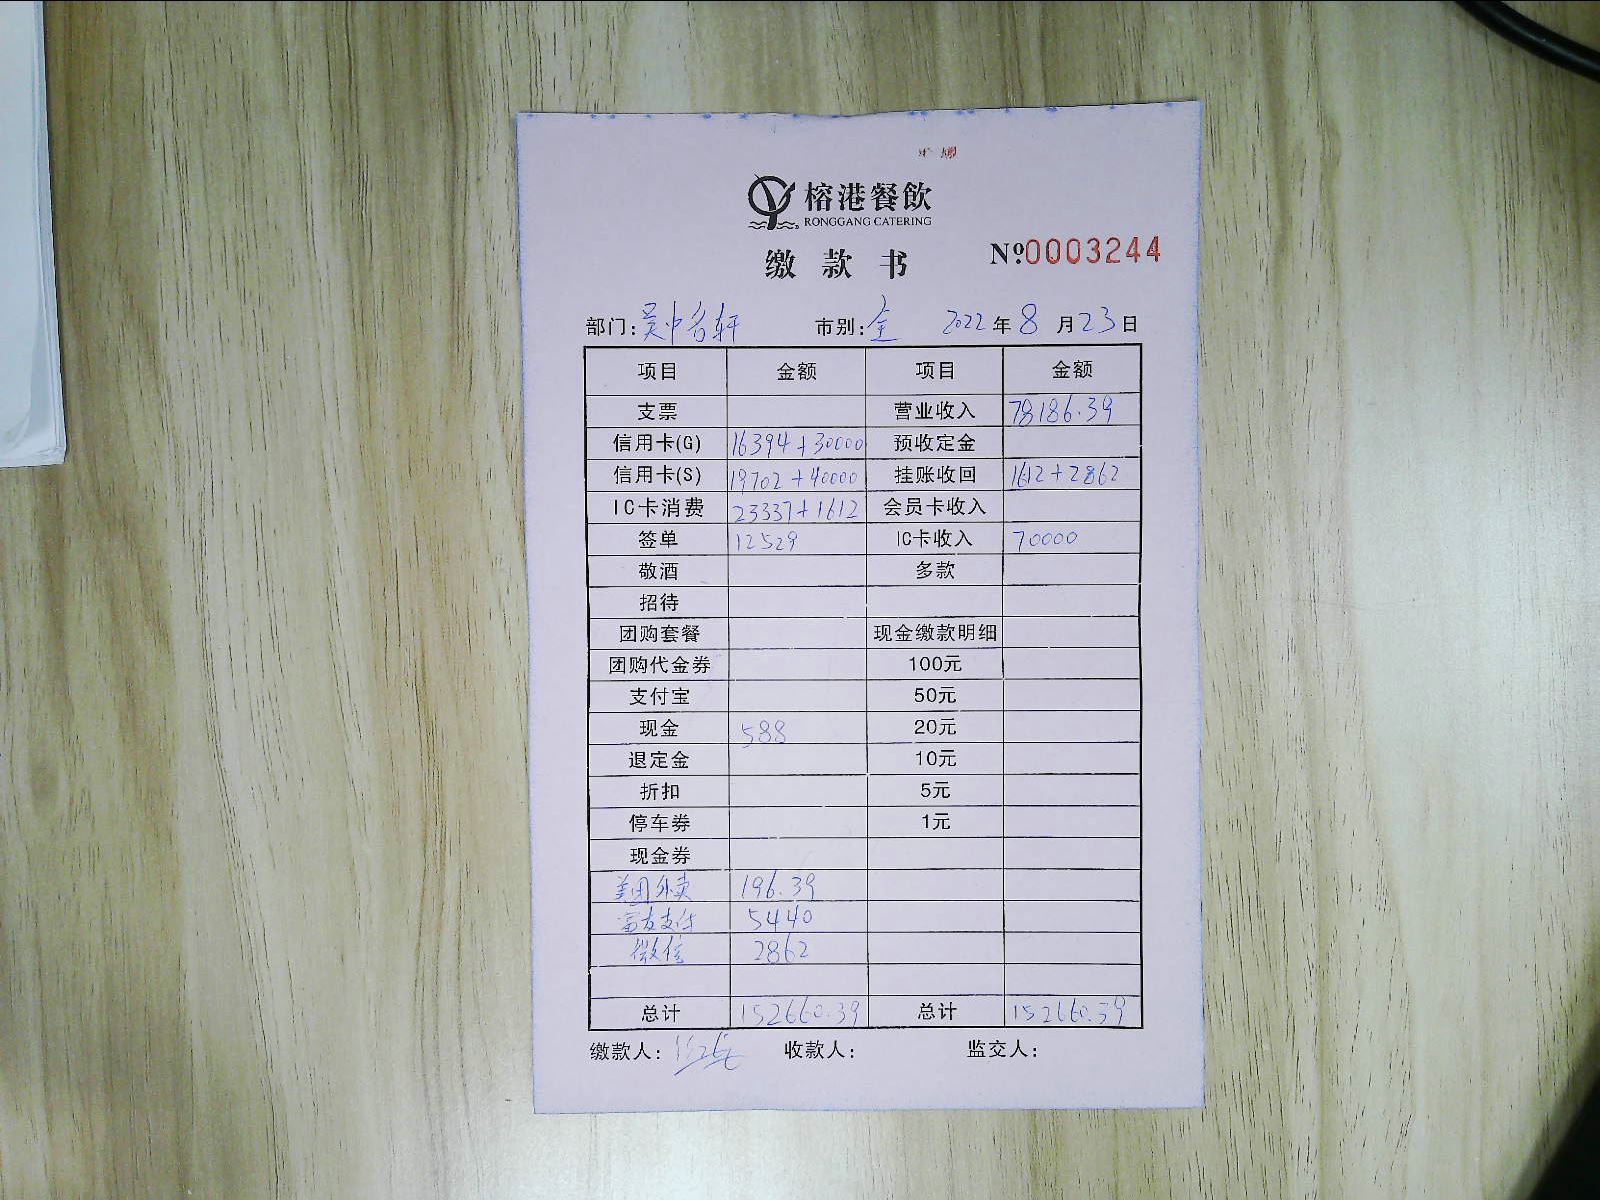 榕港餐飲
RONGGANG CATERING
缴款书 №0003244
部门：吴中名轩 市别：全 2022年8月23日
项目 金额 项目 金额
支票 营业收入 78186.39
信用卡(G) 16394+30000 预收定金
信用卡(S) 19702+40000 挂账收回 1612+2862
IC卡消费 23337+1612 会员卡收入
签单 12529 IC卡收入 70000
敬酒 多款
招待
团购套餐 现金缴款明细
团购代金券 100元
支付宝 50元
现金 588 20元
退定金 10元
折扣 5元
停车券 1元
现金券
美团外卖 196.39
富友支付 5440
微信 2862
总计 152660.39 总计 152660.39
缴款人： 收款人： 监交人：